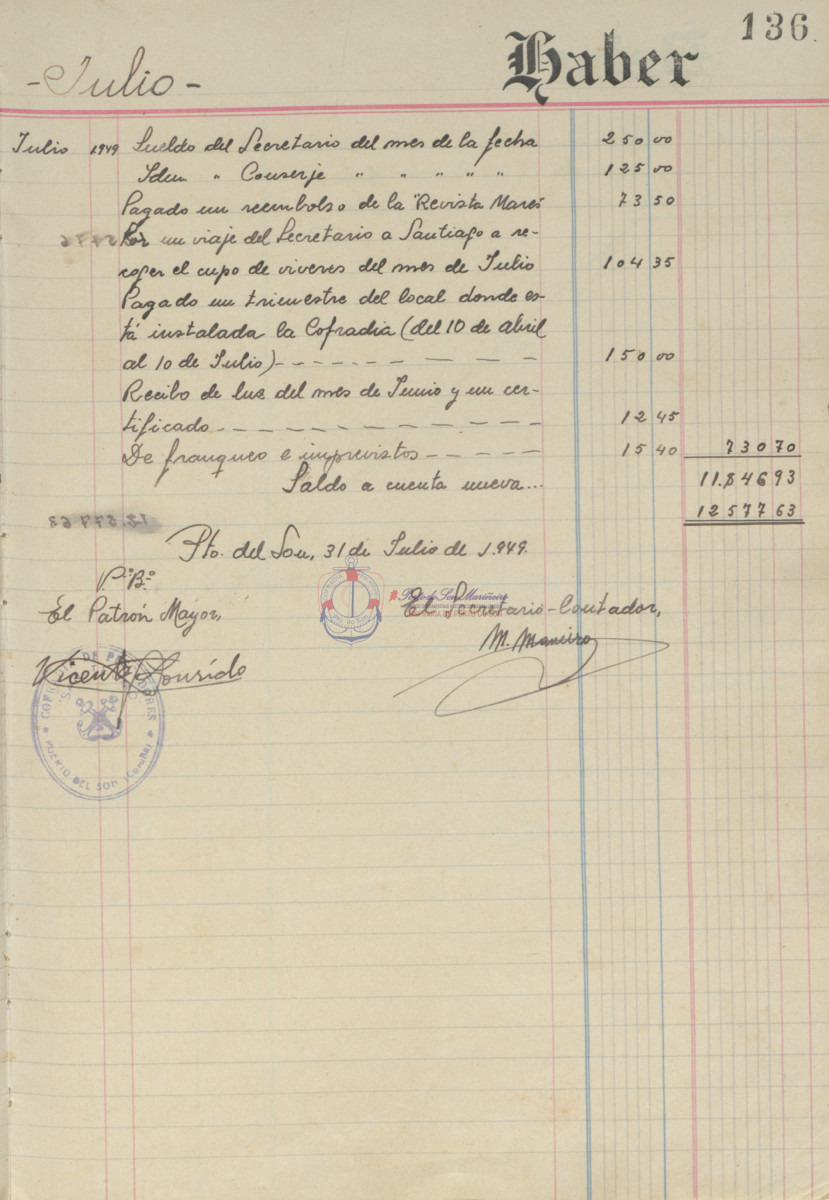 136
Haber
- Julio -
Julio 1949 Sueldo del Secretario del mes de la fecha 250 00
Idem " Conserje " " " " " 125 00
Pagado un reembolso de la "Revista Mares 73 50
Por un viaje del Secretario a Santiago a re-
coger el cupo de viveres del mes de Julio 104 35
Pagado un trimestre del local donde es-
tá instalada la Cofradia (del 10 de abril
al 10 de Julio) - - - - - - - 150 00
Recibo de luz del mes de Junio y un cer-
tificado - - - - - - - - - 12 45
De franqueo e imprevistos - - - - - 15 40 730 70
Saldo a cuenta nueva... 11.846 93
12577 63
Pto. del Son, 31 de Julio de 1.949.
Vº Bº
El Patrón Mayor, El Secretario-Contador,
Porto do Son Mariñeiro
M. Maneiro
Vicente Lourido
COFRADIA DE PESCADORES
PUERTO DEL SON (Coruña)